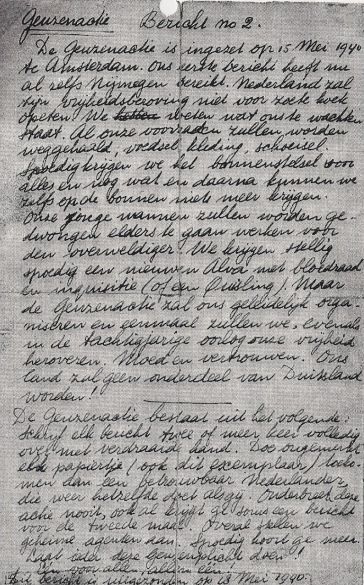 Geuzenactie Bericht no 2.
De Geuzenactie is ingezet op 15 Mei 1940
te Amsterdam. Ons eerste bericht heeft nu
al zelfs Nijmegen bereikt. Nederland zal
zijn vrijheidsberoving niet voor zoete koek
opeten. We weten wat ons te wachten
staat. Al onze voorraden zullen worden
weggehaald, voedsel, kleding, schoeisel.
Spoedig krijgen we het bonnenstelsel voor
alles en nog wat en daarna kunnen we
zelfs op de bonnen niets meer krijgen.
Onze jonge mannen zullen worden ge-
dwongen elders te gaan werken voor
den overweldiger. We krijgen stellig
spoedig een nieuwen Alva met bloedraad
en inquisitie (of een Quisling). Maar
de Geuzenactie zal ons geleidelijk orga-
niseren en eenmaal zullen we, evenals
in de tachtigjarige oorlog onze vrijheid
heroveren. Moed en vertrouwen. Ons
land zal geen onderdeel van Duitsland
worden!
De Geuzenactie bestaat uit het volgende:
Schrijf elk bericht twee of meer keer volledig
over met verdraaide hand. Dos ongemerkt
elk papiertje (ook dit exemplaar) toe
men aan een betrouwbaar Nederlander,
die weer hetzelfde doet als gij. Onderbreek deze
actie nooit, ook al krijgt ge soms een bericht
voor de tweede maal. Overal stellen we
geheime agenten aan. Spoedig hoort ge meer.
Laat ieder deze Geuzenplicht doen!
Een voor allen, allen een!
Dit bericht is uitgezonden op 18 Mei 1940.